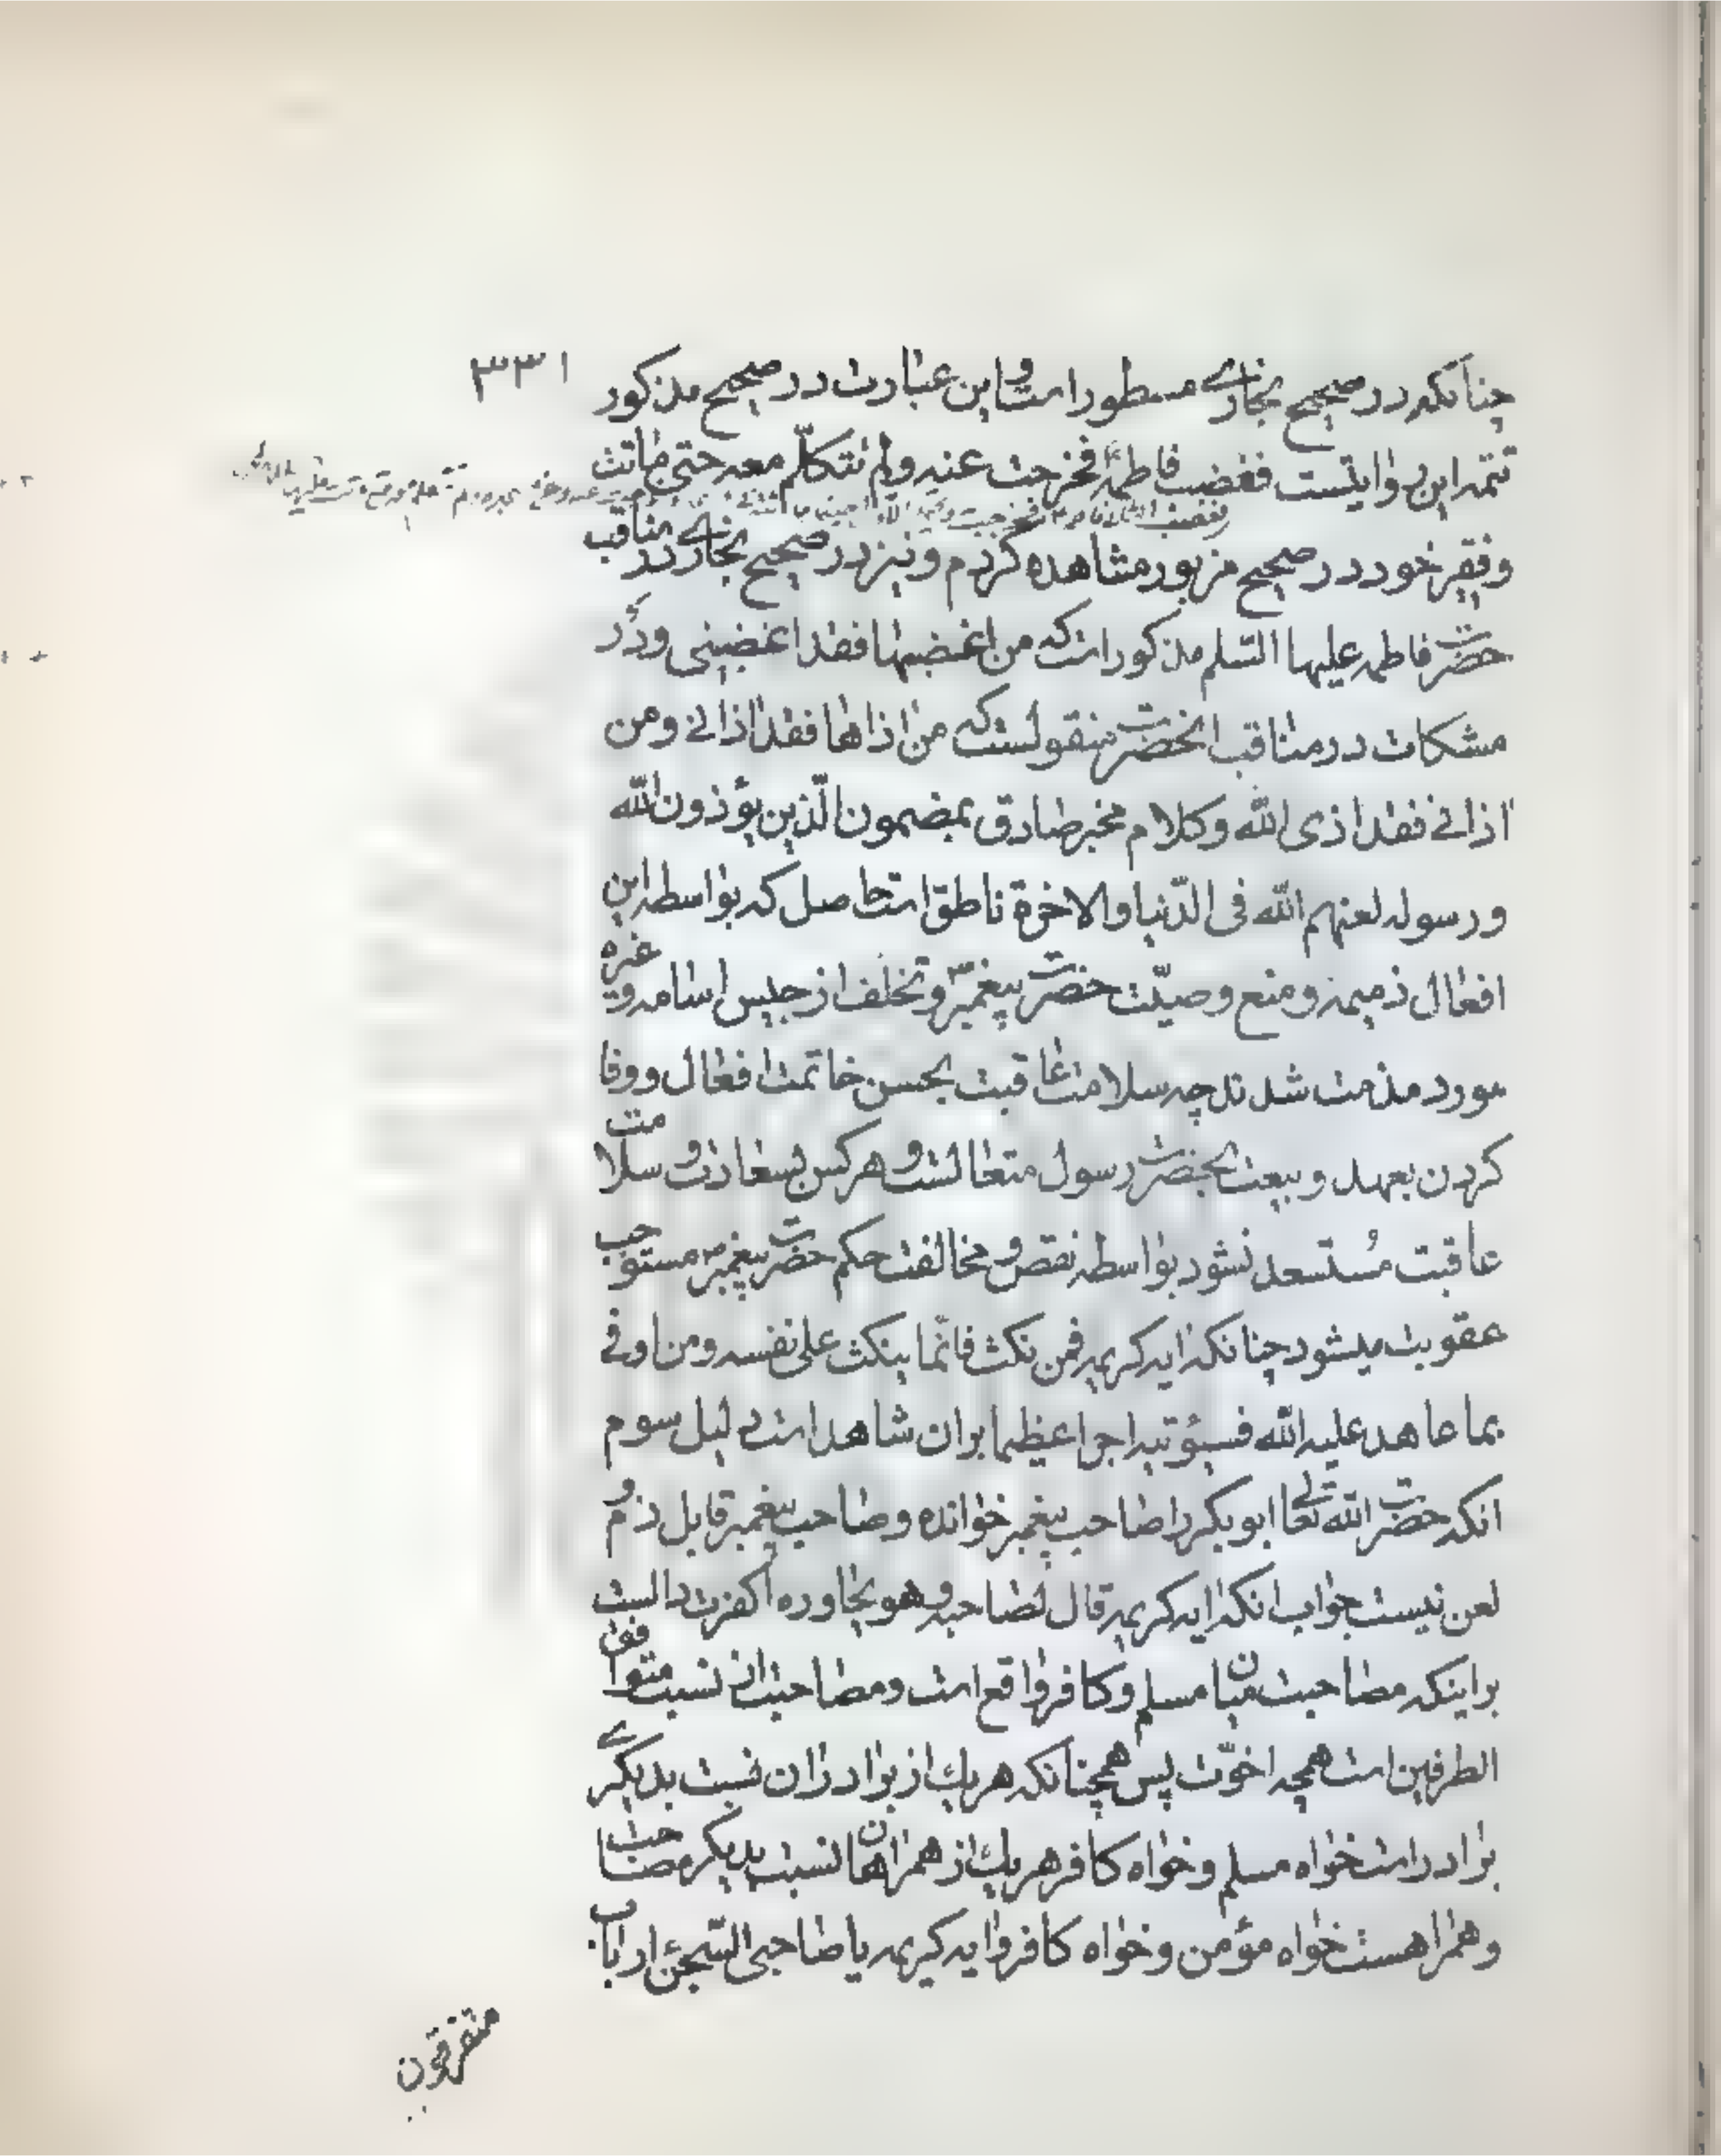 ۳۳۱
چنانکه در صحیح بخاری مسطور است و این عبارت در صحیح مذکور
تتمه این روایتست فغضبت فاطمة فخرجت عنه ولم تتکلّم معه حتی ماتت
وفقیر خود در صحیح مزبور مشاهده کردم و نیز در صحیح بخاری در مناقب
حضرت فاطمه علیها السّلم مذکور است که من اغضبها فقد اغضبنی و در
مشکات در مناقب انحضرت منقولست که من اذاها فقد اذانی ومن
اذانی فقد اذی الله وکلام مخبر صادق بمضمون الّذین یؤذون الله
ورسوله لعنهم الله فی الدّنیا والاخرة ناطق است حاصل که بواسطه این
افعال ذمیمه و منع وصیّت حضرت پیغمبرؐ و تخلف از جیش اسامه و غیره
مورد مذمت شدند چه سلامت عاقبت بحسن خاتمت افعال و وفا
کردن بعهد و بیعت بحضرت رسول متعالست و هر کس بسعادت و سلامت
عاقبت مستسعد نشود بواسطه نقض و مخالفت حکم حضرت پیغمبرؐ مستوجب
عقوبت میشود چنانکه ایه کریمه فمن نکث فانّما ینکث علی نفسه ومن اوفی
بما عاهد علیه الله فسیؤتیه اجرا عظیما بران شاهد است دلیل سوم
انکه حضرت الله تعالی ابوبکر را صاحب پیغمبر خوانده و صاحب پیغمبر قابل ذم و
لعن نیست جواب انکه ایه کریمه قال لصاحبه و هو یحاوره اکفرت دالست
بر اینکه مصاحبت میان مسلم و کافر واقع است و مصاحبت از نسبت متوافق
الطرفین است همچه اخوّت پس همچنانکه هریک از برادران نسبت بدیگری
برادر است خواه مسلم و خواه کافر هریک از همراهان نسبت بدیگره صاحب
و همراهست خواه مؤمن و خواه کافر و ایه کریمه یا صاحبی السّجن ءارباب
متفرقون